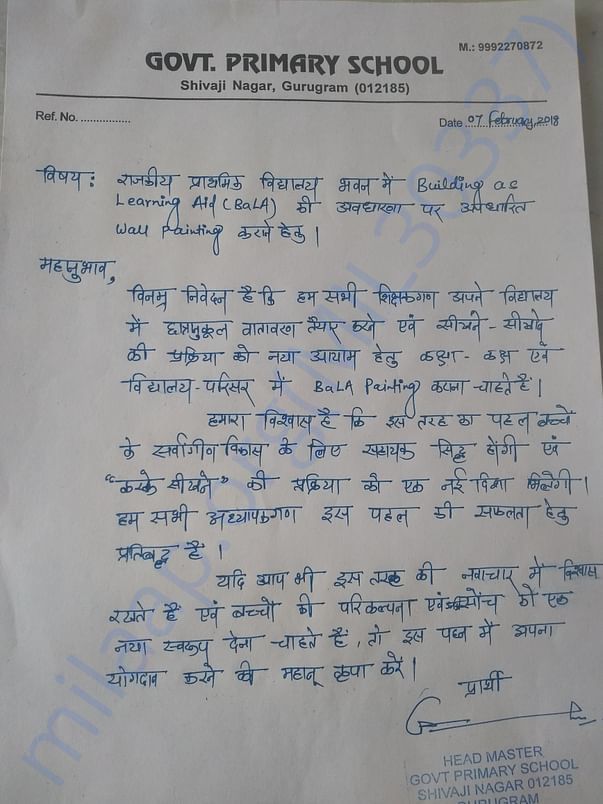 M.: 9992270872
GOVT. PRIMARY SCHOOL
Shivaji Nagar, Gurugram (012185)
Ref. No. ................
Date ..07 February, 2018
विषय : राजकीय प्राथमिक विद्यालय भवन में Building as
Learning Aid (BaLA) की अवधारणा पर आधारित
Wall Painting करने हेतु ।
महानुभाव,
विनम्र निवेदन है कि हम सभी शिक्षकगण अपने विद्यालय
में छात्रानुकूल वातावरण तैयार करने एवं सीखने - सीखाने
की प्रक्रिया को नया आयाम हेतु कक्षा - कक्ष एवं
विद्यालय - परिसर में BaLA Painting कराना चाहते हैं ।
हमारा विश्वास है कि इस तरह का पहल बच्चों
के सर्वांगीण विकास के लिए सहायक सिद्ध होंगी एवं
"करके सीखने" की प्रक्रिया को एक नई दिशा मिलेगी ।
हम सभी अध्यापकगण इस पहल की सफलता हेतु
प्रतिबद्ध हैं ।
यदि आप भी इस तरह की नवाचार में विश्वास
रखते हैं एवं बच्चों की परिकल्पना एवं सोंच को एक
नया स्वरूप देना चाहते हैं, तो इस पहल में अपना
योगदान करने की महान् कृपा करें ।
प्रार्थी
HEAD MASTER
GOVT PRIMARY SCHOOL
SHIVAJI NAGAR 012185
GURUGRAM